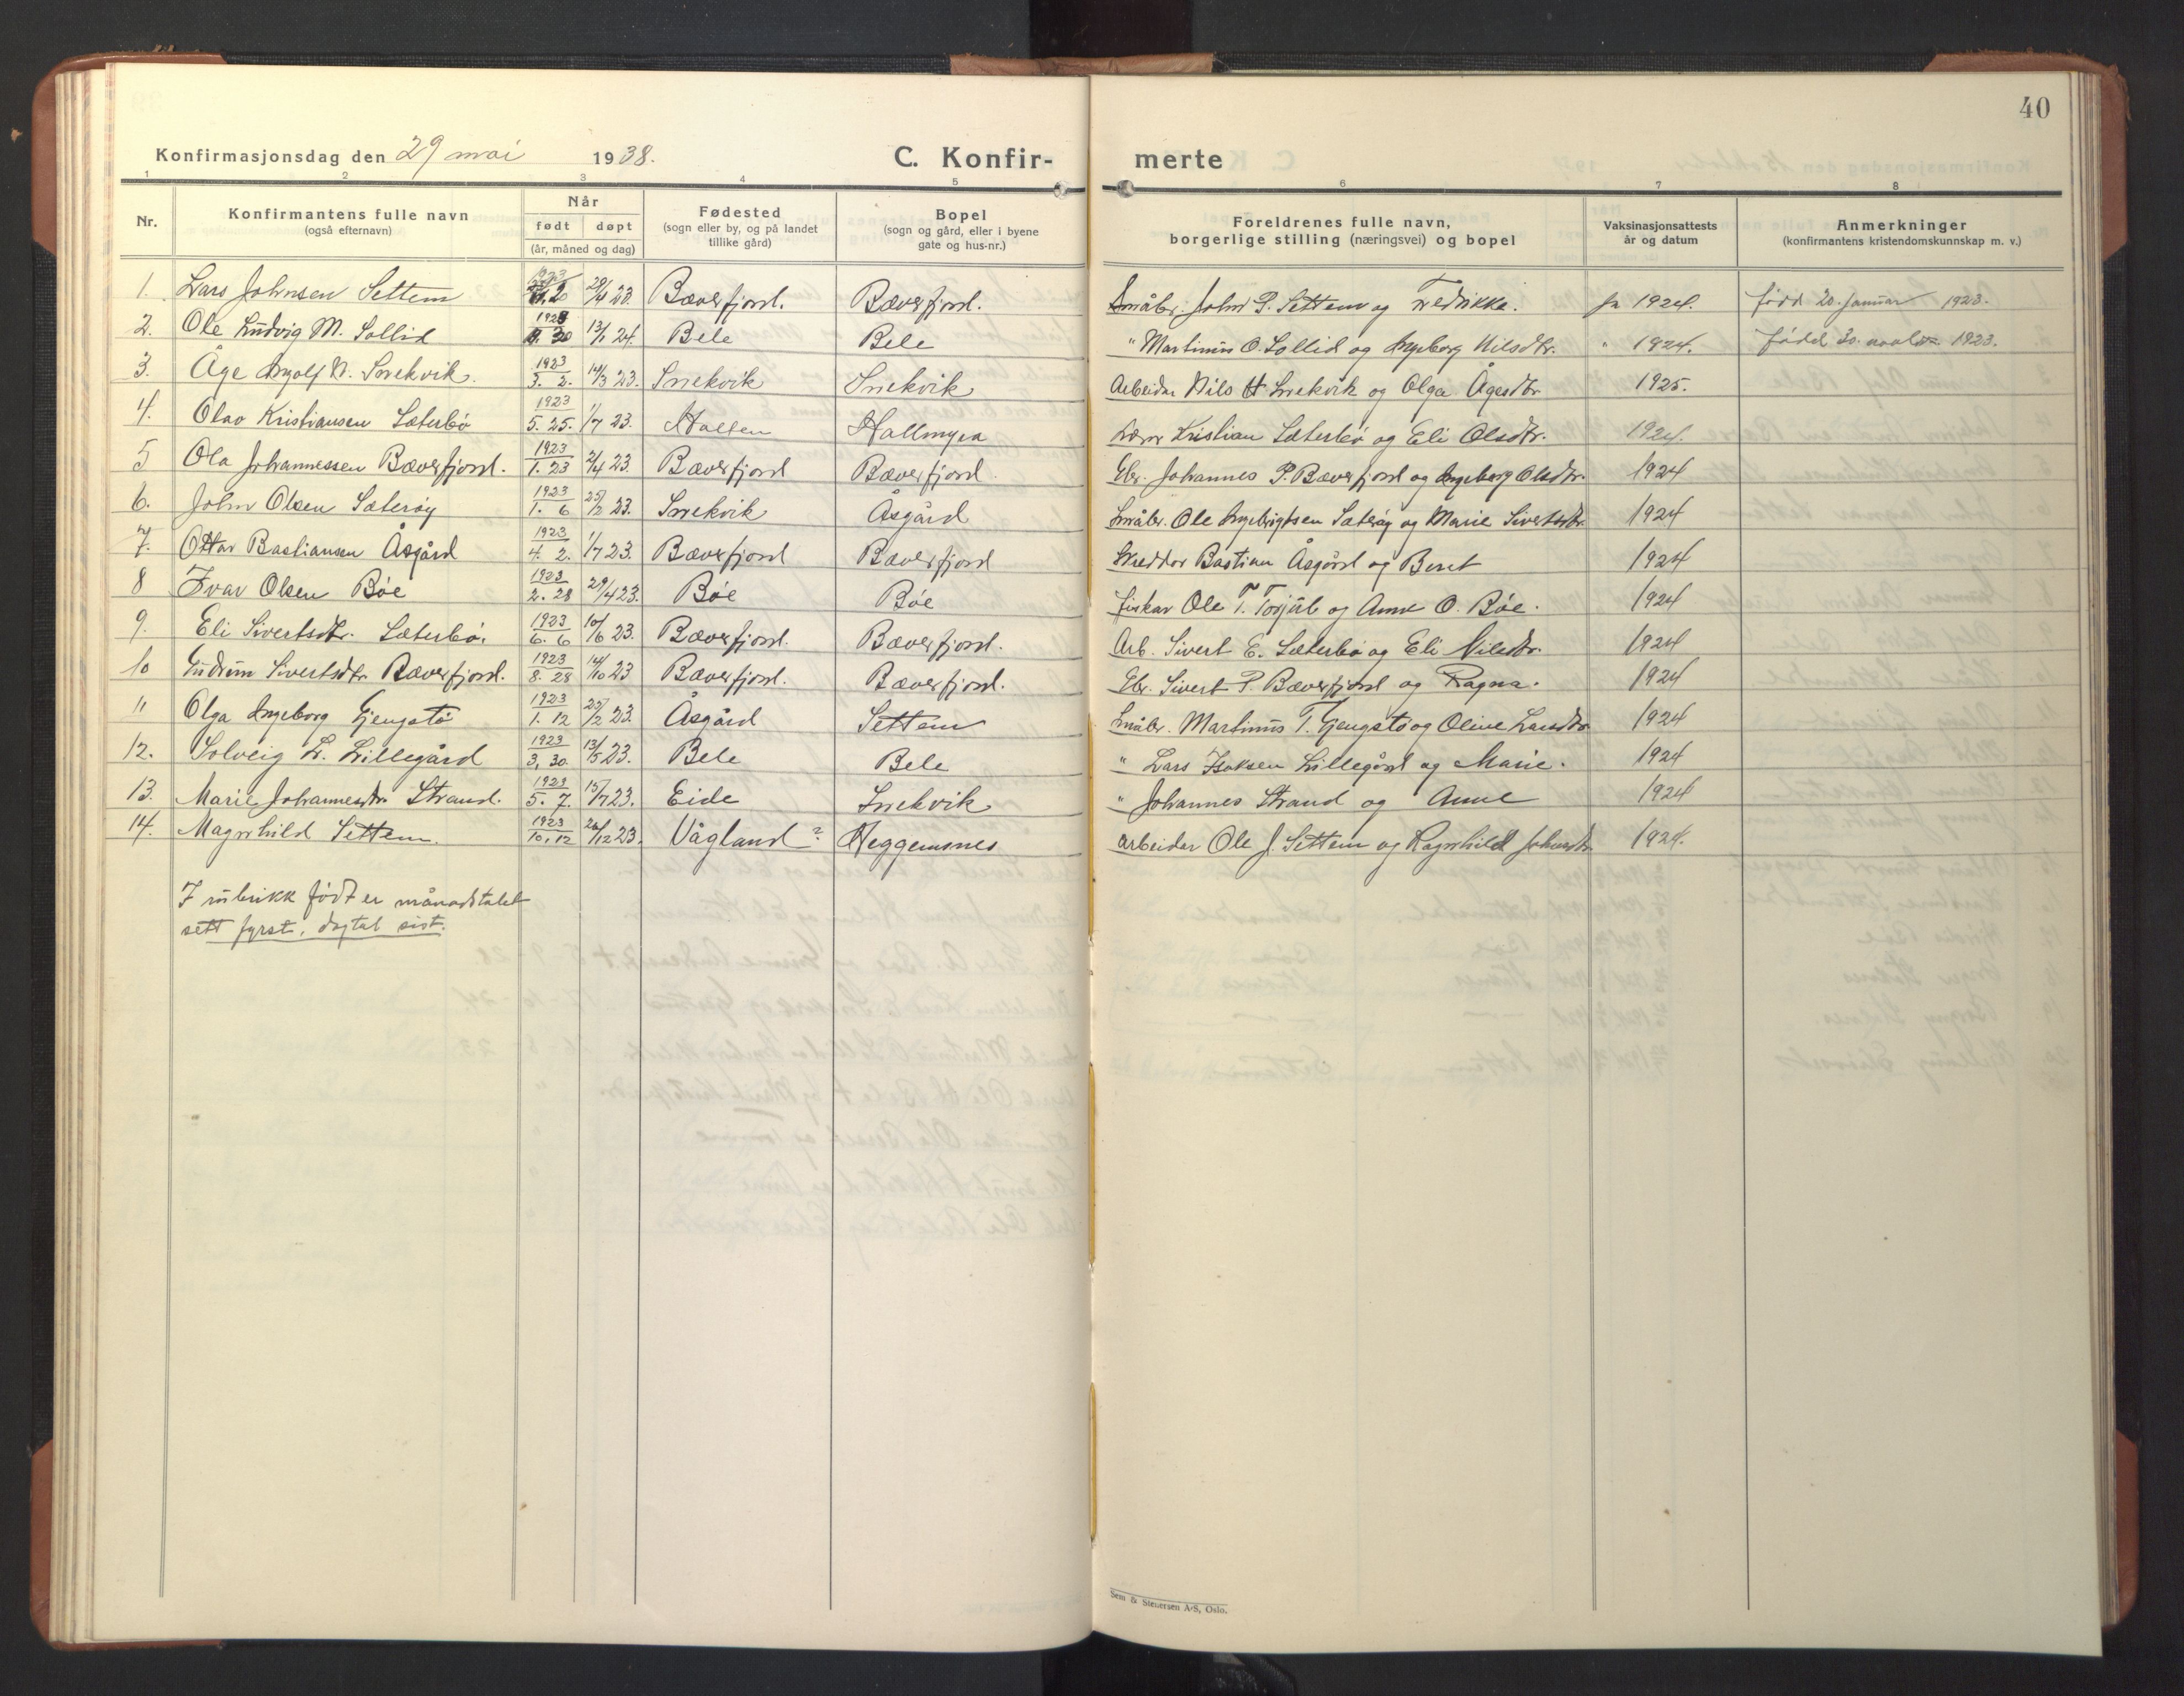 40
Konfirmasjonsdag den 29 mai 1938. C. Konfir- merte
1 2 3 4 5 6 7 8
Nr. Konfirmantens fulle navn (også efternavn) Når født døpt (år, måned og dag) Fødested (sogn eller by, og på landet tillike gård) Bopel (sogn og gård, eller i byene gate og hus-nr.) Foreldrenes fulle navn, borgerlige stilling (næringsvei) og bopel Vaksinasjonsattests år og datum Anmerkninger (konfirmantens kristendomskunnskap m. v.)
1. Lars Johnsen Settem 1923 29/4 23. Bæverfjord. Bæverfjord. Småbr. John P. Settem og Fredrikke. 1924. född 20. januar 1923.
2. Ole Ludvig M. Sollid 1923 13/1 24. Bele Bele " Martinus O. Sollid og Ingeborg Nilsdtr. " 1924. född 30. 1923.
3. Åge Ingolf N. Snekvik. 1923 3. 2. 14/3 23. Snekvik Snekvik Arbeidar Nils H Snekvik og Olga Ågesdtr 1925.
4. Olav Kristiansen Sæterbø 1923 5. 25. 1/7 23. Hallen Hallmyra Kristian Sæterbø og Eli Olsdtr. 1924.
5 Ola Johannessen Bæverfjord. 1923 1. 23 2/4 23. Bæverfjord Bæverfjord. Gbr. Johannes P. Bæverfjord og Ingeborg Olsdtr. 1924
6. John Olsen Sæterøy 1923 1. 6 25/2 23. Snekvik Åsgård Småbr. Ole Ingebrigtsen Sæterøy og Marie Sivertsdtr. 1924
7. Ottar Bastiansen Åsgård 1923 4. 2. 1/7 23. Bæverfjord Bæverfjord Skreddar Bastian Åsgård og Beret 1924
8 Ivar Olsen Bøe 1923 2. 28 29/4 23. Bøe Bøe Fiskar Ole T. Torjul og Anne O. Bøe. 1924
9. Eli Sivertsdtr. Sæterbø. 1923 6. 6 10/6 23. Bæverfjord. Bæverfjord. Arb. Sivert E. Sæterbø og Eli Nilsdtr. 1924
10 Gudrun Sivertsdtr Bæverfjord. 1923 8. 28 14/10 23 Bæverfjord. Bæverfjord. Gbr. Sivert P. Bæverfjord og Ragna. 1924
11 Olga Ingeborg Gjengstø 1923 1. 12 25/2 23. Åsgård Settem Småbr. Martinus T. Gjengstø og Oline Larsdtr 1924
12. Solveig L. Lillegård 1923 3. 30 13/5 23. Bele Bele " Lars Isaksen Lillegård og Marie. 1924
13. Marie Johannesdtr Strand. 1923 5. 7. 15/7 23. Eide Snekvik " Johannes Strand og Anne 1924
14. Magnhild Settem. 1923 10. 12 26/12 23. Vågland ? Heggemsnes Arbeidar Ole J. Settem og Ragnhild Johnsdtr 1924.
I rubrikk født er månadstalet
sett fyrst, dagtal sist.
Sem & Stenersen A/S, Oslo.